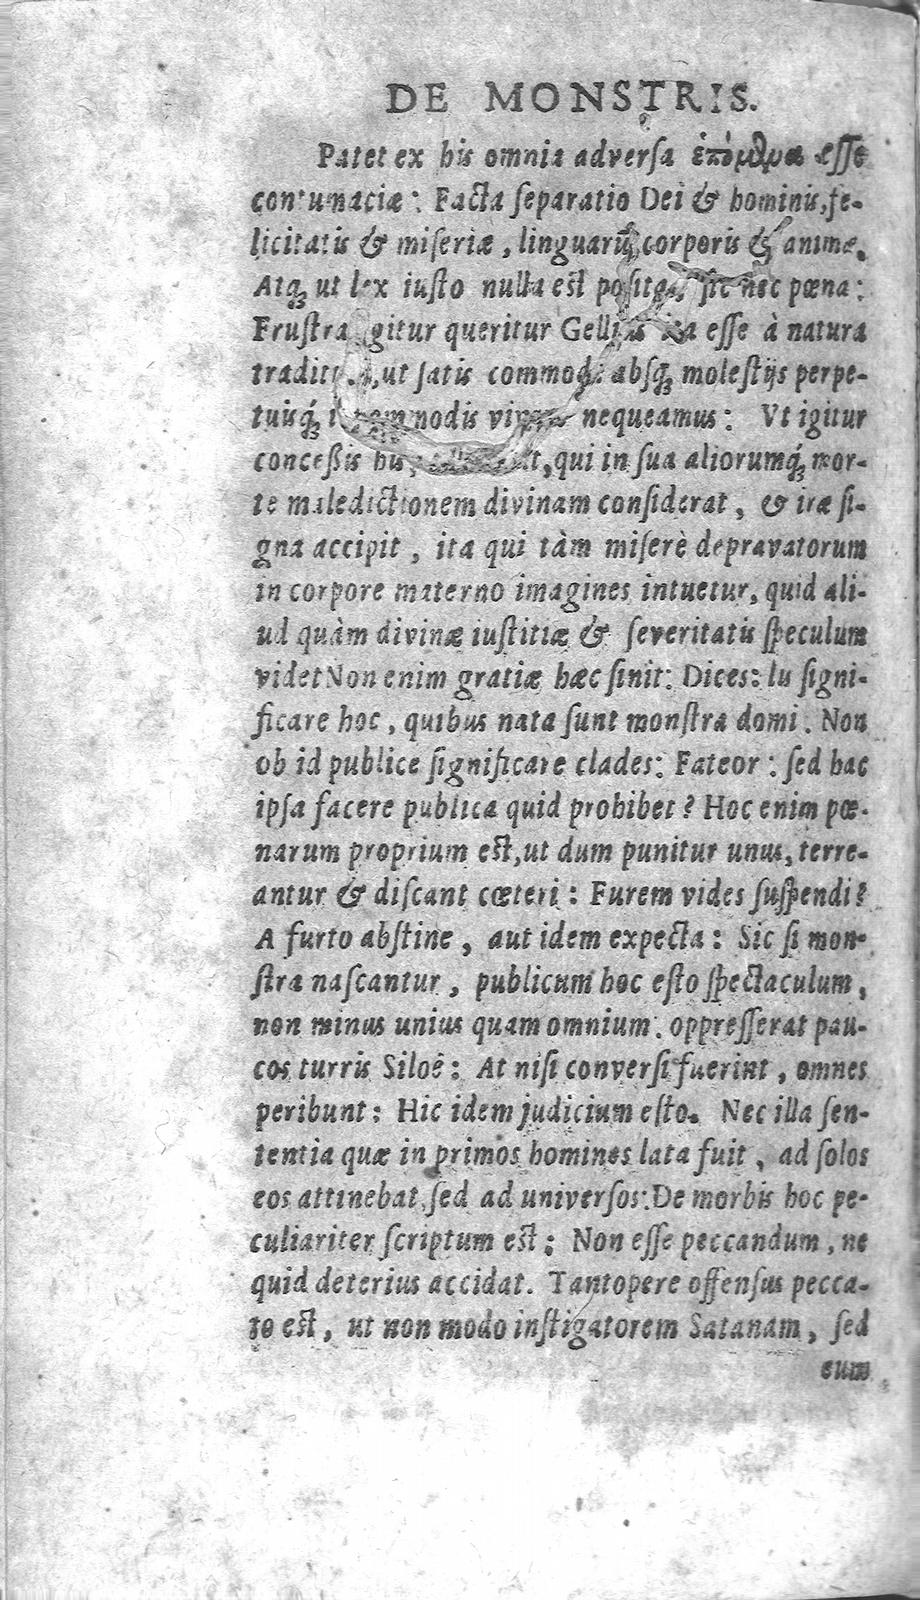 DE MONSTRIS.
Patet ex his omnia adversa ἑπόμενα esse
contumaciæ: Facta separatio Dei & hominis, fe-
licitatis & miseriæ, linguarū, corporis & animæ.
Atq; ut lex iusto nulla est posita, sic nec pœna:
Frustra igitur queritur Gellius ita esse à natura
ut satis commodè absq; molestijs perpe-
tuisq́; nequeamus: Vt igitur
concessis his, qui in sua aliorumq́; mor-
te maledictionem divinam considerat, & iræ si-
gna accipit, ita qui tàm miserè depravatorum
in corpore materno imagines intuetur, quid ali-
ud quàm divinæ iustitiæ & severitatis speculum
videt Non enim gratiæ hæc sinit: Dices: Iis signi-
ficare hoc, quibus nata sunt monstra domi. Non
ob id publice significare clades: Fateor: sed hac
ipsa facere publica quid prohibet? Hoc enim pœ-
narum proprium est, ut dum punitur unus, terre-
antur & discant cœteri: Furem vides suspendi?
A furto abstine, aut idem expecta: Sic si mon-
stra nascantur, publicum hoc esto spectaculum,
non minus unius quam omnium. oppresserat pau-
cos turris Siloê: At nisi conversi fuerint, omnes
peribunt: Hic idem judicium esto. Nec illa sen-
tentia quæ in primos homines lata fuit, ad solos
eos attinebat, sed ad universos: De morbis hoc pe-
culiariter scriptum est: Non esse peccandum, ne
quid deterius accidat. Tantopere offensus pecca-
to est, ut non modo instigatorem Satanam, sed
eum